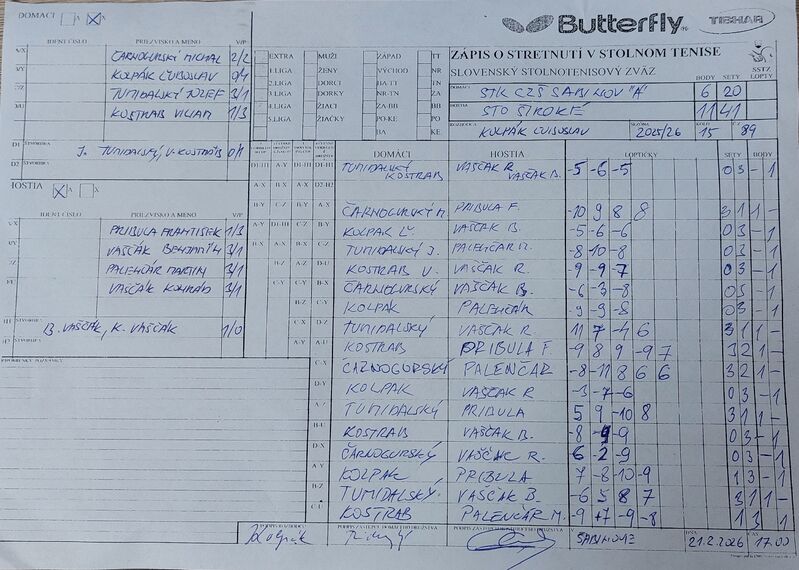 DOMÁCI A X
Butterfly TIBHAR
IDENT ČÍSLO PRIEZVISKO A MENO V/P
ČARNOGURSKÝ MICHAL 2/2
KOLPÁK ĽUBOSLAV 0/4
TUMIDALSKÝ JOZEF 3/1
KOSTRAB VILIAM 1/3
ŠTVORHRA
J. TUMIDALSKÝ, V. KOSTRÁB 0/1
HOSTIA
IDENT ČÍSLO PRIEZVISKO A MENO V/P
PRIBULA FRANTIŠEK 1/3
VAŠČÁK BENJAMÍN 3/1
PALENČÁR MARTIN 3/1
VAŠČÁK KONRÁD 3/1
ŠTVORHRA
B. VAŠČÁK, K. VAŠČÁK 1/0
EXTRA MUŽI ZÁPAD TT
1.LIGA ŽENY VÝCHOD NR
2.LIGA DORCI BA-TT TN
3.LIGA DORKY NR-TN ZA
4.LIGA ŽIACI ZA-BB BB
5.LIGA ŽIAČKY PO-KE PO
BA KE
ZÁPIS O STRETNUTÍ V STOLNOM TENISE
SLOVENSKÝ STOLNOTENISOVÝ ZVÄZ
SSTZ
BODY SETY LOPTY
DOMÁCI STK CZŠ SABINOV "A" 6 20
HOSTIA STO ŠIROKÉ 11 41
ROZHODCA KOLPÁK ĽUBOSLAV SEZÓNA 2025/26 KOLO 15 89
DOMÁCI HOSTIA LOPTIČKY SETY BODY
TUMIDALSKÝ KOSTRAB VAŠČÁK R. VAŠČÁK B. -5 -6 -5 0 3 - 1
ČARNOGURSKÝ M. PRIBULA F. -10 9 8 8 3 1 1 -
KOLPAK Ľ. VAŠČAK B. -5 -6 -6 0 3 - 1
TUMIDALSKÝ J. PALENČÁR M. -8 -10 -8 0 3 - 1
KOSTRAB V. VAŠČAK R. -9 -9 -7 0 3 - 1
ČARNOGURSKÝ VAŠČAK B. -6 -3 -8 0 3 - 1
KOLPÁK PALENČÁR -9 -9 -8 0 3 - 1
TUMIDALSKÝ VAŠČAK R. 11 7 -4 6 3 1 1 -
KOSTRAB PRIBULA F. -9 8 9 -9 7 3 2 1 -
ČARNOGURSKÝ PALENČAR -8 -11 8 6 6 3 2 1 -
KOLPAK VAŠČAK R -3 -7 -6 0 3 - 1
TUMIDALSKÝ PRIBULA 5 9 -10 8 3 1 1 -
KOSTRAB VAŠČAK B. -8 -9 -9 0 3 - 1
ČARNOGURSKÝ VAŠČAK R. -6 -2 -9 0 3 - 1
KOLPAK PRIBULA 7 -8 -10 -9 1 3 - 1
TUMIDALSKÝ VAŠČAK B. -6 5 8 7 3 1 1 -
KOSTRAB PALENČÁR M. -9 +7 -9 -8 1 3 1
PODPIS ROZHODCU PODPIS ZÁSTUPCU DOMÁCEHO DRUŽSTVA V SABINOVE DŇA 21.2.2026 ČAS 17.00